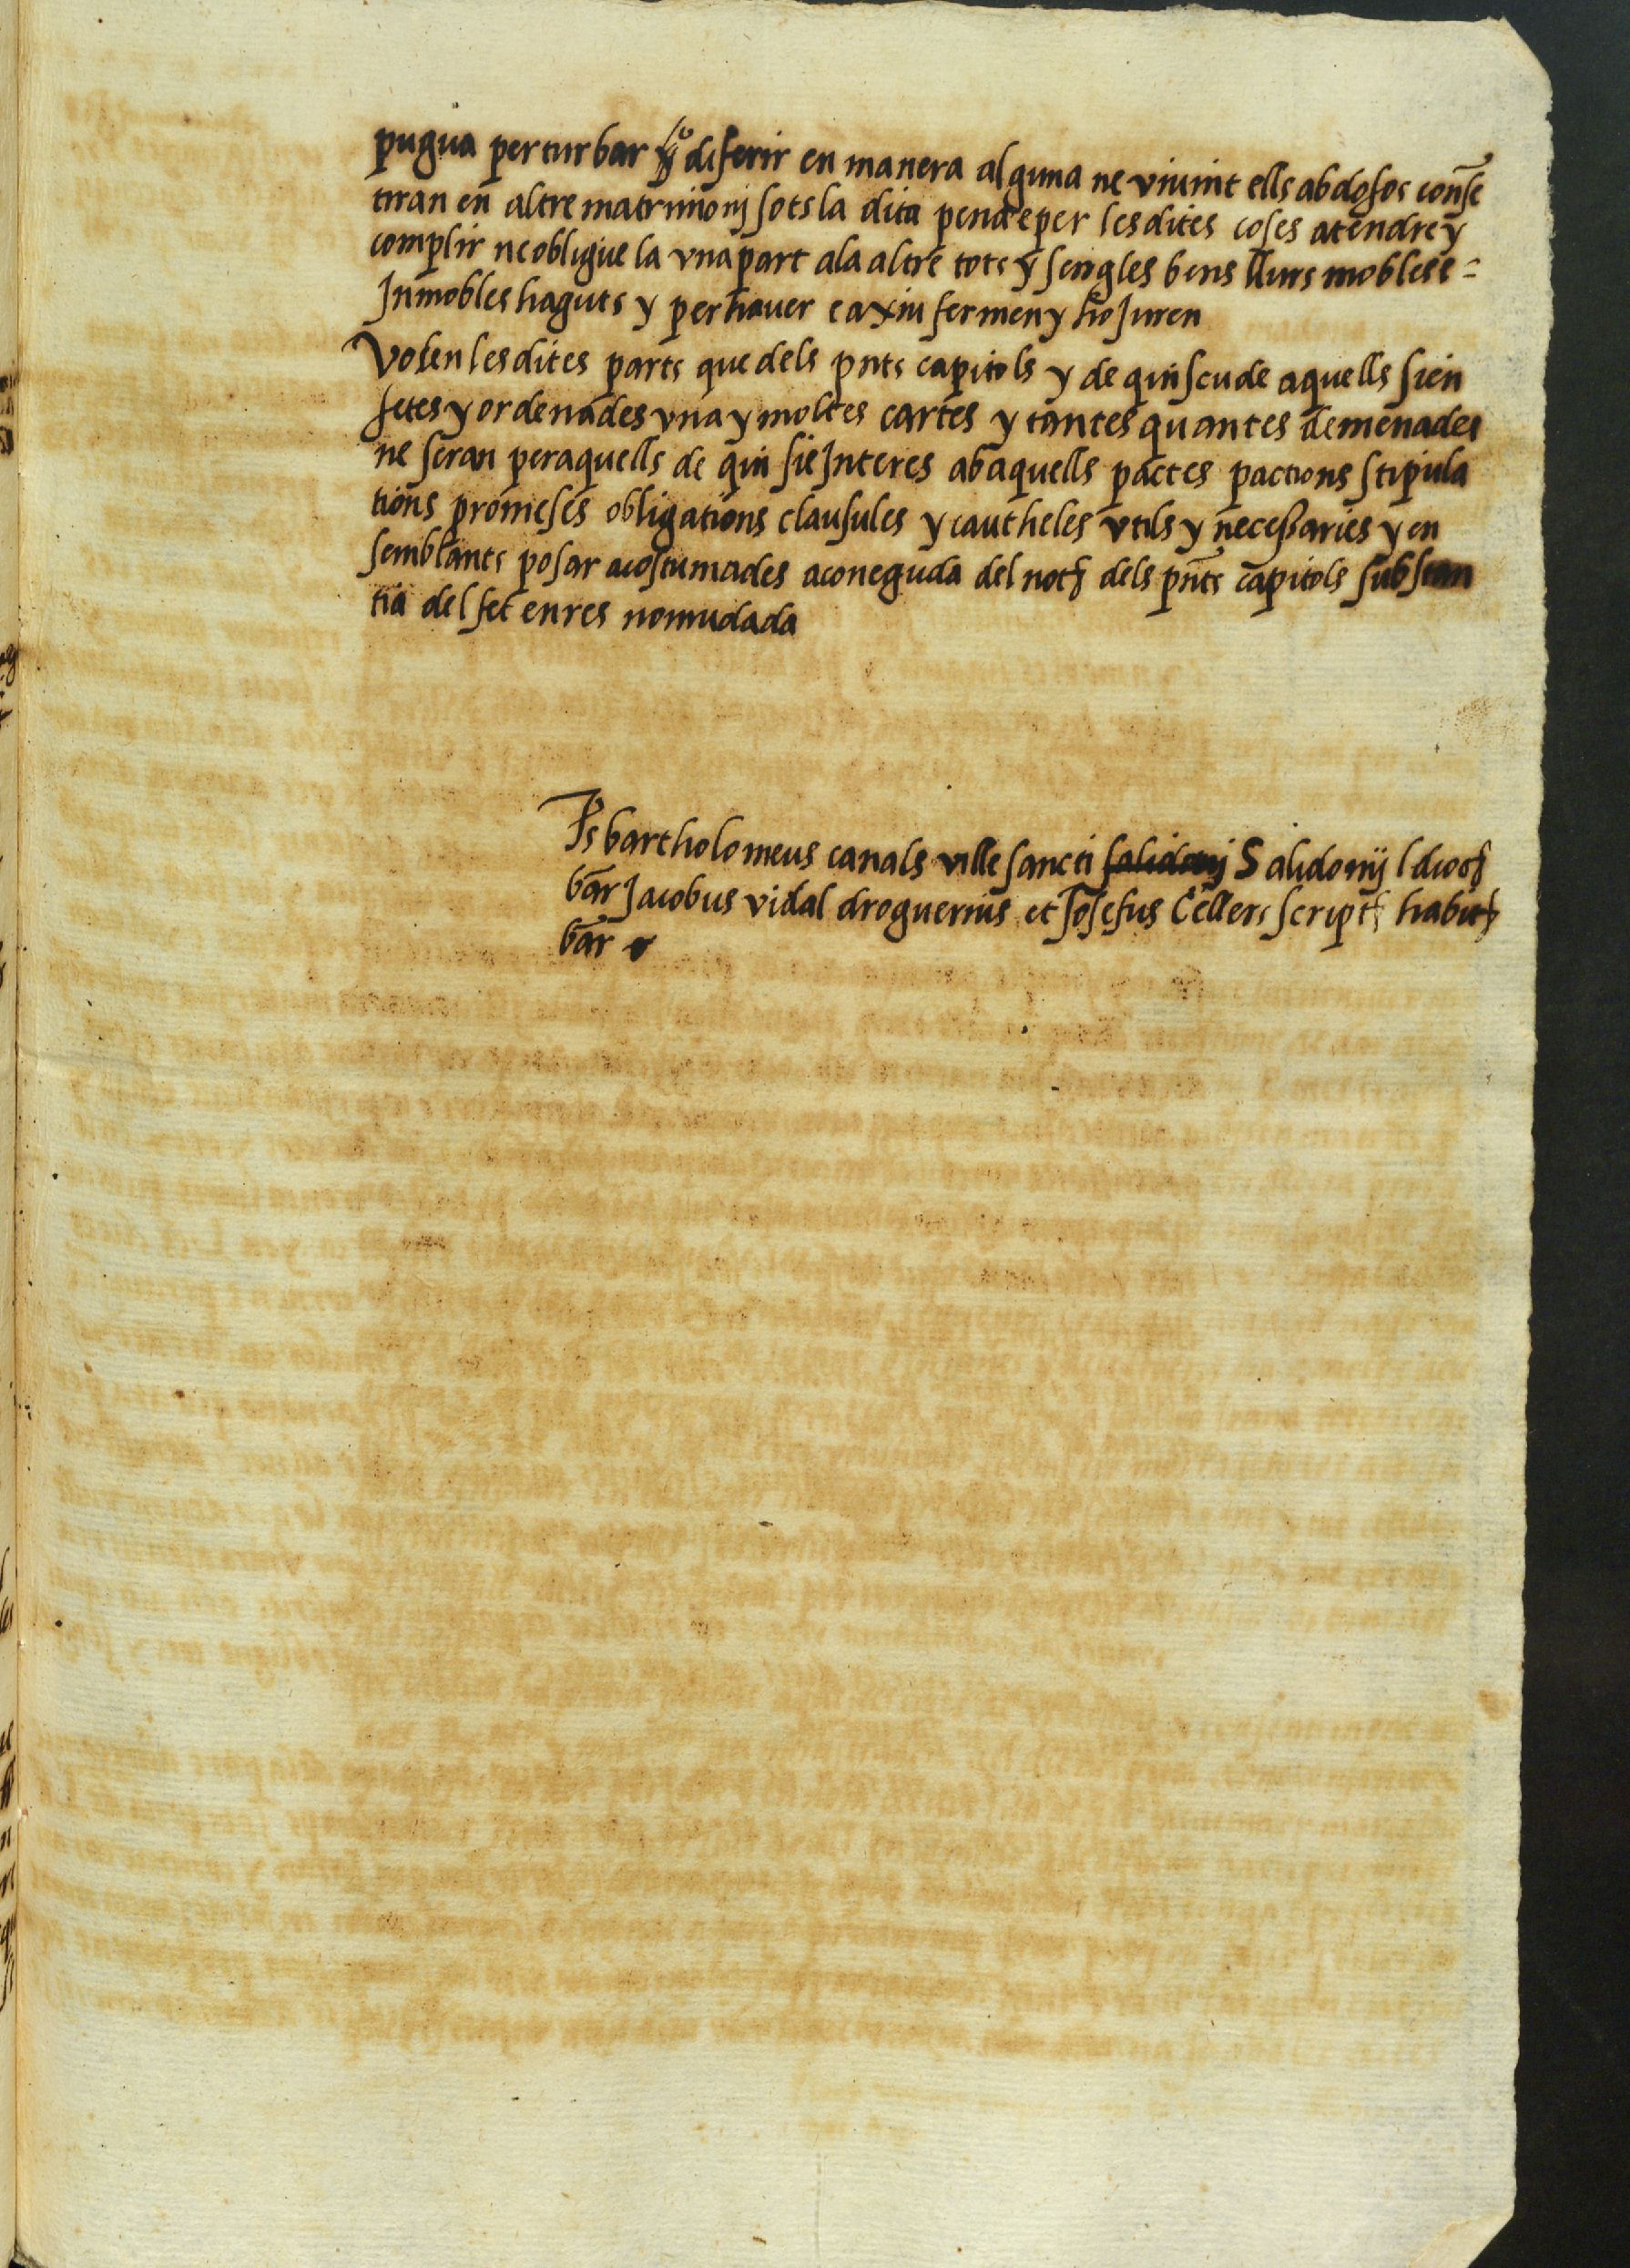 pugua perturbar o diferir en manera alguna ne viuint ells abdosos conse
tiran en altre matrimonj sots la dita pena e per les dites coses atendre y
complir ne obligue la vna part a la altre tots y sengles bens llurs mobles e =
Jnmobles haguts y per hauer e axiu fermen y ho Juren
Volen les dites parts que dels pnts capitols y de quiscu de aquells sien
fetes y ordenades vna y moltes cartes y tantes quantes demenades
ne seran per aquells de qui sie Jnteres ab aquells pactes pactions stipula
tions promeses obligations clausules y cautheles vtils y necessaries y en
semblants posar acostumades a coneguda del not dels pnts capitols substan
tia del fet en res no mudada
Ts bartholomeus canals ville sancti salidonij Salidonij
bar Jacobus vidal droguerius et Josefus Cellers script habit
bar